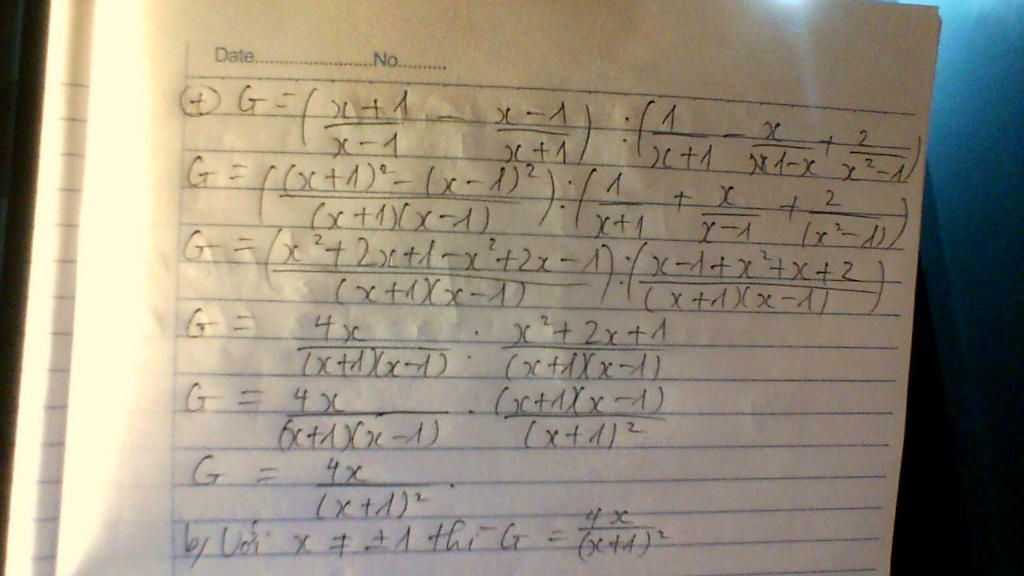 Date..............................No..........
(+) G = ((x+1)/(x-1) - (x-1)/(x+1)) : (1/(x+1) - x/(1-x) + 2/(x²-1))
G = (((x+1)² - (x-1)²)/((x+1)(x-1))) : (1/(x+1) + x/(x-1) + 2/(x²-1))
G = ((x²+2x+1-x²+2x-1)/((x+1)(x-1))) : ((x-1+x²+x+2)/((x+1)(x-1)))
G = 4x/((x+1)(x-1)) : (x²+2x+1)/((x+1)(x-1))
G = 4x/((x+1)(x-1)) . ((x+1)(x-1))/(x+1)²
G = 4x/(x+1)² .
b, Với x ≠ ±1 thì G = 4x/(x+1)²